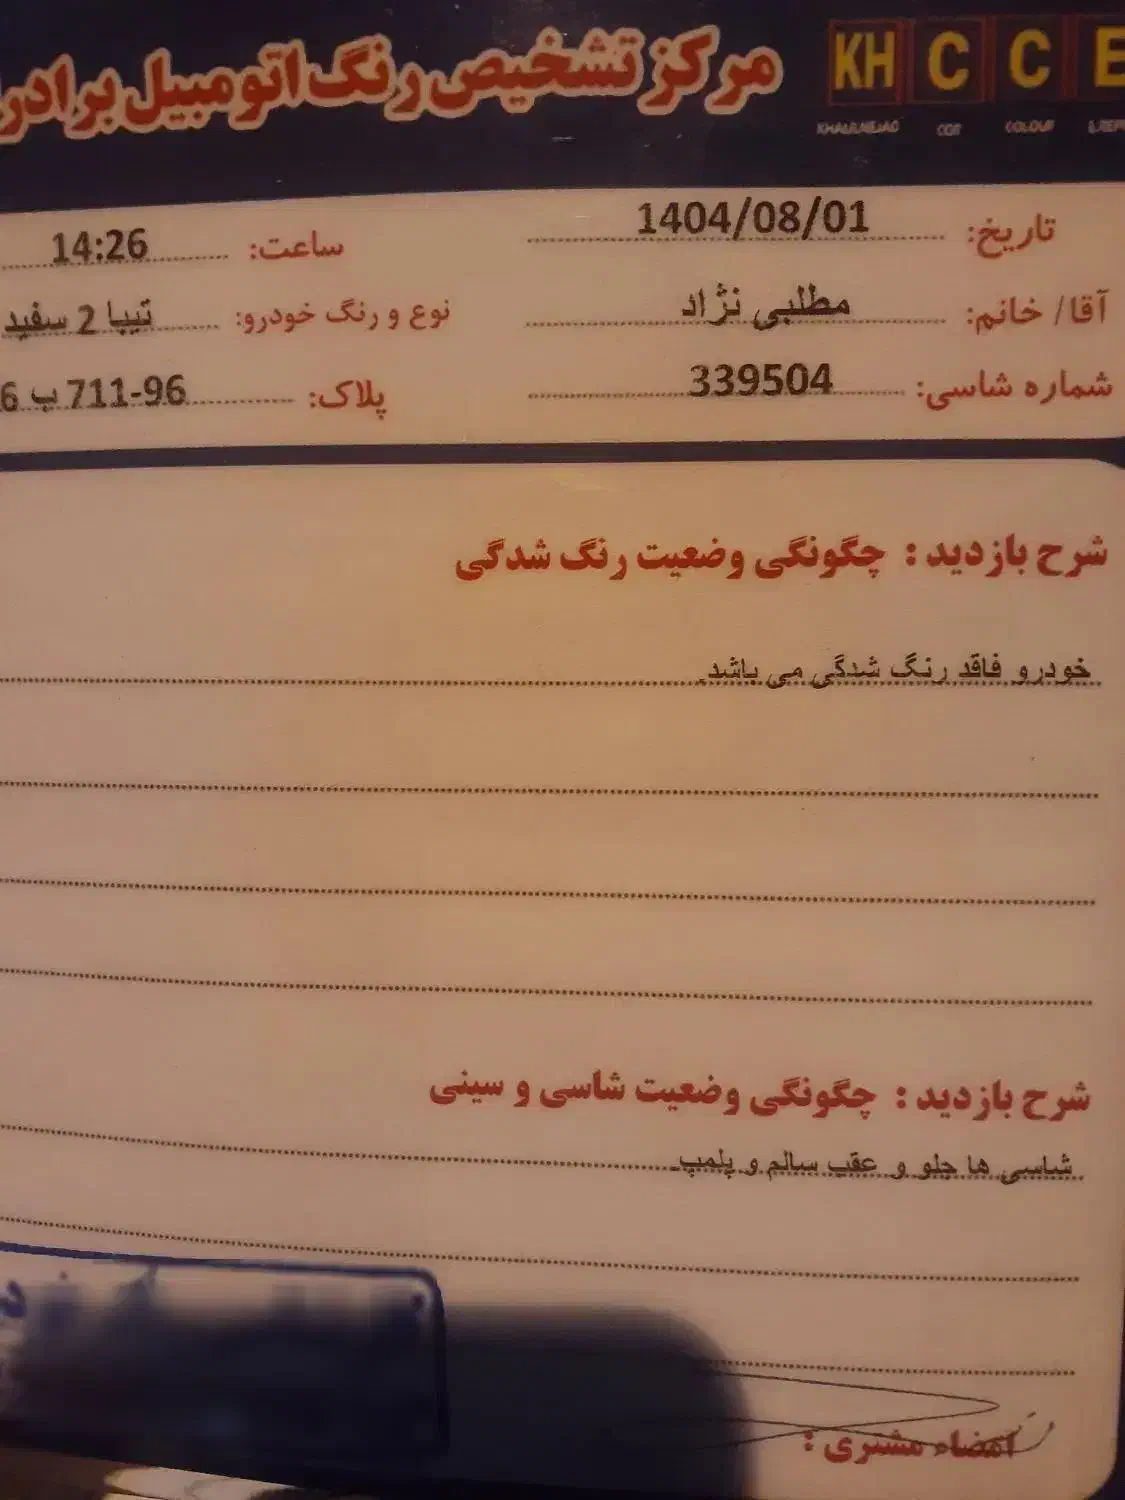 مرکز تشخیص رنگ اتومبیل
KH C C E
KHALILNEJAD CAR COLOUR
تاریخ: 1404/08/01 ساعت: 14:26
آقا/ خانم: مطلبی نژاد نوع و رنگ خودرو: تیبا 2 سفید
شماره شاسی: 339504 پلاک: 96-711 ب 6
شرح بازدید : چگونگی وضعیت رنگ شدگی
خودرو فاقد رنگ شدگی می باشد.
شرح بازدید : چگونگی وضعیت شاسی و سینی
شاسی ها جلو و عقب سالم و پلمپ
امضاء مشتری :